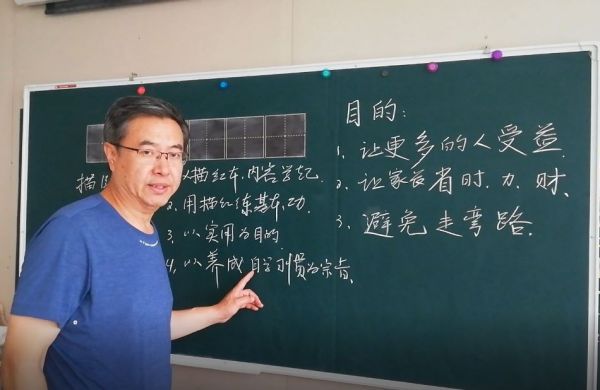 描
描红本,内容学起.
2. 用描红练基本功.
3. 以实用为目的
4. 以养成自学习惯为宗旨.
目的:
1. 让更多的人受益.
2. 让家长省时.力.财.
3. 避免走弯路.